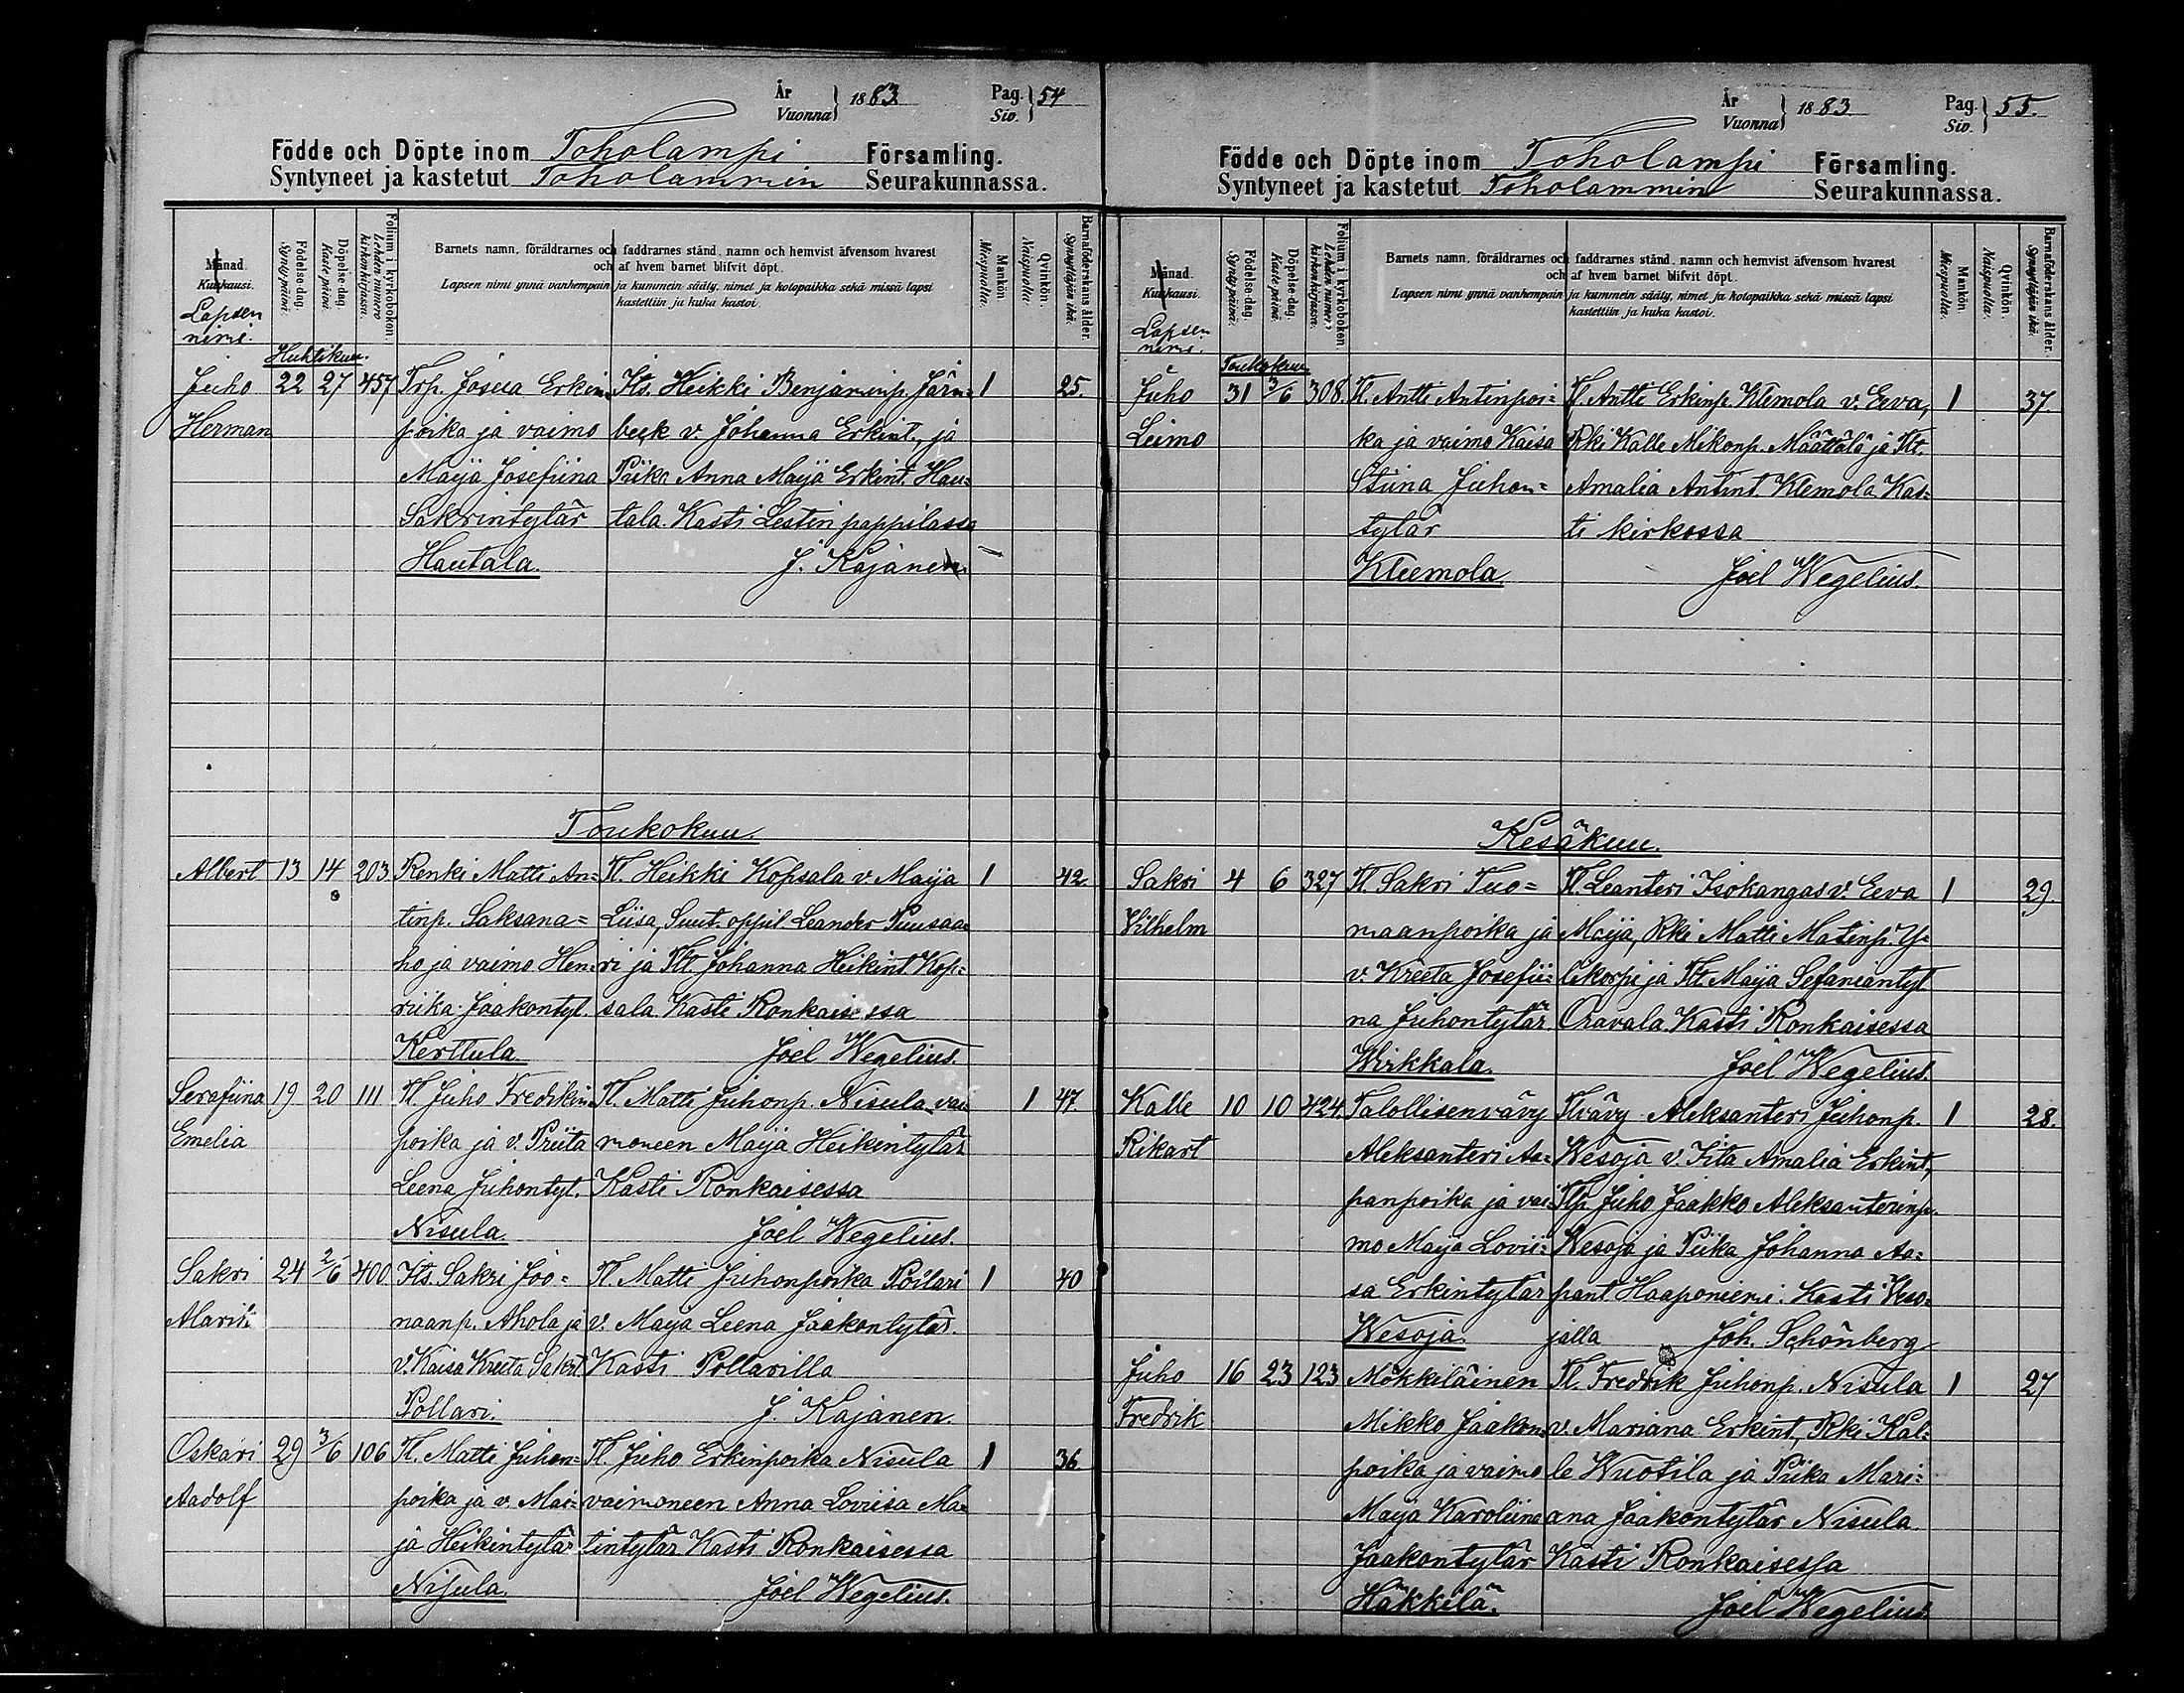 År
Vuonna 1883. Pag.
Siv. 54
Födde och Döpte inom Toholampi Församling.
Syntyneet ja kastetut Toholammin Seurakunnassa.
Månad.
Kuukausi.
Lapsen
nimi.
Födelse-dag.
Synty-päivä.
Döpelse-dag.
Kaste-päivä.
Folium i kyrkoboken.
Lehden numero
kirkonkirjassa.
Barnets namn, föräldrarnes och faddrarnes stånd, namn och hemvist äfvensom hvarest
och af hvem barnet blifvit döpt.
Lapsen nimi ynnä vanhempain ja kummein sääty, nimet ja kotopaikka sekä missä lapsi
kastettiin ja kuka kastoi.
Mankön.
Miespuolta.
Qvinkön.
Naispuolta.
Barnaföderskans ålder.
Synnyttäjän ikä.
Huhtikuu.
Juho 22 27 457 Trp. Josua Erkin- Its. Heikki Benjaminp. Järn- 1 25.
Herman poika ja vaimo beck v. Johanna Erkint., ja
Maija Josefiina Piika Anna Maija Erkint. Hau-
Sakrintytär tala. Kasti Lestin pappilassa
Hautala. J. Kajanen.
Toukokuu.
Albert 13 14 203 Renki Matti An- Tl. Heikki Kopsala v. Maija 1 42
tinp. Saksana- Liisa, Suut. oppil. Leander Puusaa-
ho ja vaimo Hen- ri ja Tlt. Johanna Heikint. Kop-
riika Jaakontyt. sala Kasti Ronkaisessa
Kerttula Joel Wegelius.
Serafiina 19 20 111 Tl Juho Fredrikin- Tl. Matti Juhonp. Nisula vai- 1 47.
Emelia poika ja v. Priita moneen Maija Heikintytär
Leena Juhontyt. Kasti Ronkaisessa
Nisula. Joel Wegelius.
Sakri 24 2/6 400 Its. Sakri Joo- Tl. Matti Juhonpoika Poilari 1 40
Alarik naanp. Ahola ja v. Maija Leena Jaakontytär.
v. Kaisa Kreeta Sakrt. Kasti Pollarilla
Pollari. J. Kajanen.
Oskari 29 3/6 106 Tl. Matti Juhon- Tl. Juho Erkinpoika Nisula 1 36.
Aadolf poika ja v. Mai- vaimoneen Anna Loviisa Ma-
ja Heikintytär tintytär. Kasti Ronkaisessa
Nisula. Joel Wegelius.
År
Vuonna 1883. Pag.
Siv. 55.
Födde och Döpte inom Toholampi Församling.
Syntyneet ja kastetut Toholammin Seurakunnassa.
Månad.
Kuukausi.
Lapsen
nimi.
Födelse-dag.
Synty-päivä.
Döpelse-dag.
Kaste-päivä.
Folium i kyrkoboken.
Lehden numero
kirkonkirjassa.
Barnets namn, föräldrarnes och faddrarnes stånd, namn och hemvist äfvensom hvarest
och af hvem barnet blifvit döpt.
Lapsen nimi ynnä vanhempain ja kummein sääty, nimet ja kotopaikka sekä missä lapsi
kastettiin ja kuka kastoi.
Mankön.
Miespuolta.
Qvinkön.
Naispuolta.
Barnaföderskans ålder.
Synnyttäjän ikä.
Toukokuu.
Juho 31 3/6 308. Tl. Antti Antinpoi- Tl. Antti Erkinp. Klemola v. Eeva, 1 37.
Leimo ka ja vaimo Kaisa Rki Kalle Mikonp. Määttälä ja Tlt.
Stiina Juhon- Amalia Antint. Klemola. Kas-
tytär ti kirkossa
Kleemola. Joel Wegelius.
Kesäkuu.
Sakri 4 6 327 Tl. Sakri Tuo- Tl. Leanteri Isokangas v. Eeva 1 29.
Vilhelm maanpoika ja Maija, Rki Matti Matinp. Y-
v. Kreeta Josefii- likorpi ja Tlt. Maija Sefaniantyt
na Juhontytär Oravala. Kasti Ronkaisessa
Wirkkala. Joel Wegelius.
Kalle 10 10 424. Talollisenvävy Tlvävy Aleksanteri Juhonp. 1 28.
Rikart Aleksanteri Aa- Wesoja v. Iita Amalia Erkint,
panpoika ja vai- Tlp. Juho Jaakko Aleksanterinp.
mo Maija Lovii- Wesoja ja Piika Johanna Aa-
sa Erkintytär pant Haaponiemi. Kasti Veso-
Wesoja. jalla Joh. Schönberg
Juho 16 23 123 Mökkiläinen Tl. Fredrik Juhonp. Nisula 1 27
Fredrik Mikko Jaakon- v. Mariana Erkint, Rki Kal-
poika ja vaimo le Wuotila ja Piika Mari-
Maija Karoliina ana Jaakontytär Nisula.
Jaakontytär Kasti Ronkaisessa
Häkkilä. Joel Wegelius.